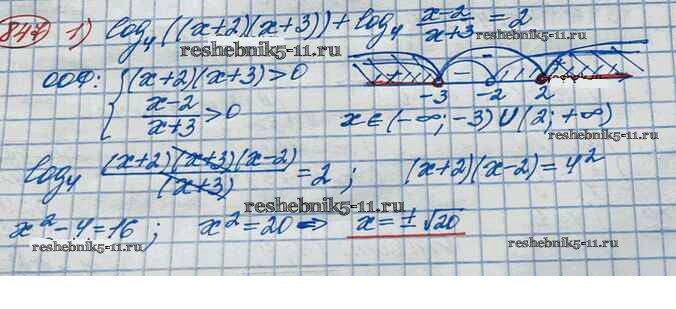 847 1) log₄((x+2)(x+3)) + log₄ (x-2)/(x+3) = 2
reshebnik5-11.ru
ООФ: { (x+2)(x+3)>0
(x-2)/(x+3) >0
+ - - +
-3 -2 2
reshebnik5-11.ru
reshebnik5-11.ru
x∈(-∞;-3)∪(2;+∞)
log₄ (x+2)(x+3)(x-2)/(x+3) = 2; (x+2)(x-2)=4²
reshebnik5-11.ru
x²-4=16; x²=20 ⇒ x=±√20
reshebnik5-11.ru
reshebnik5-11.ru